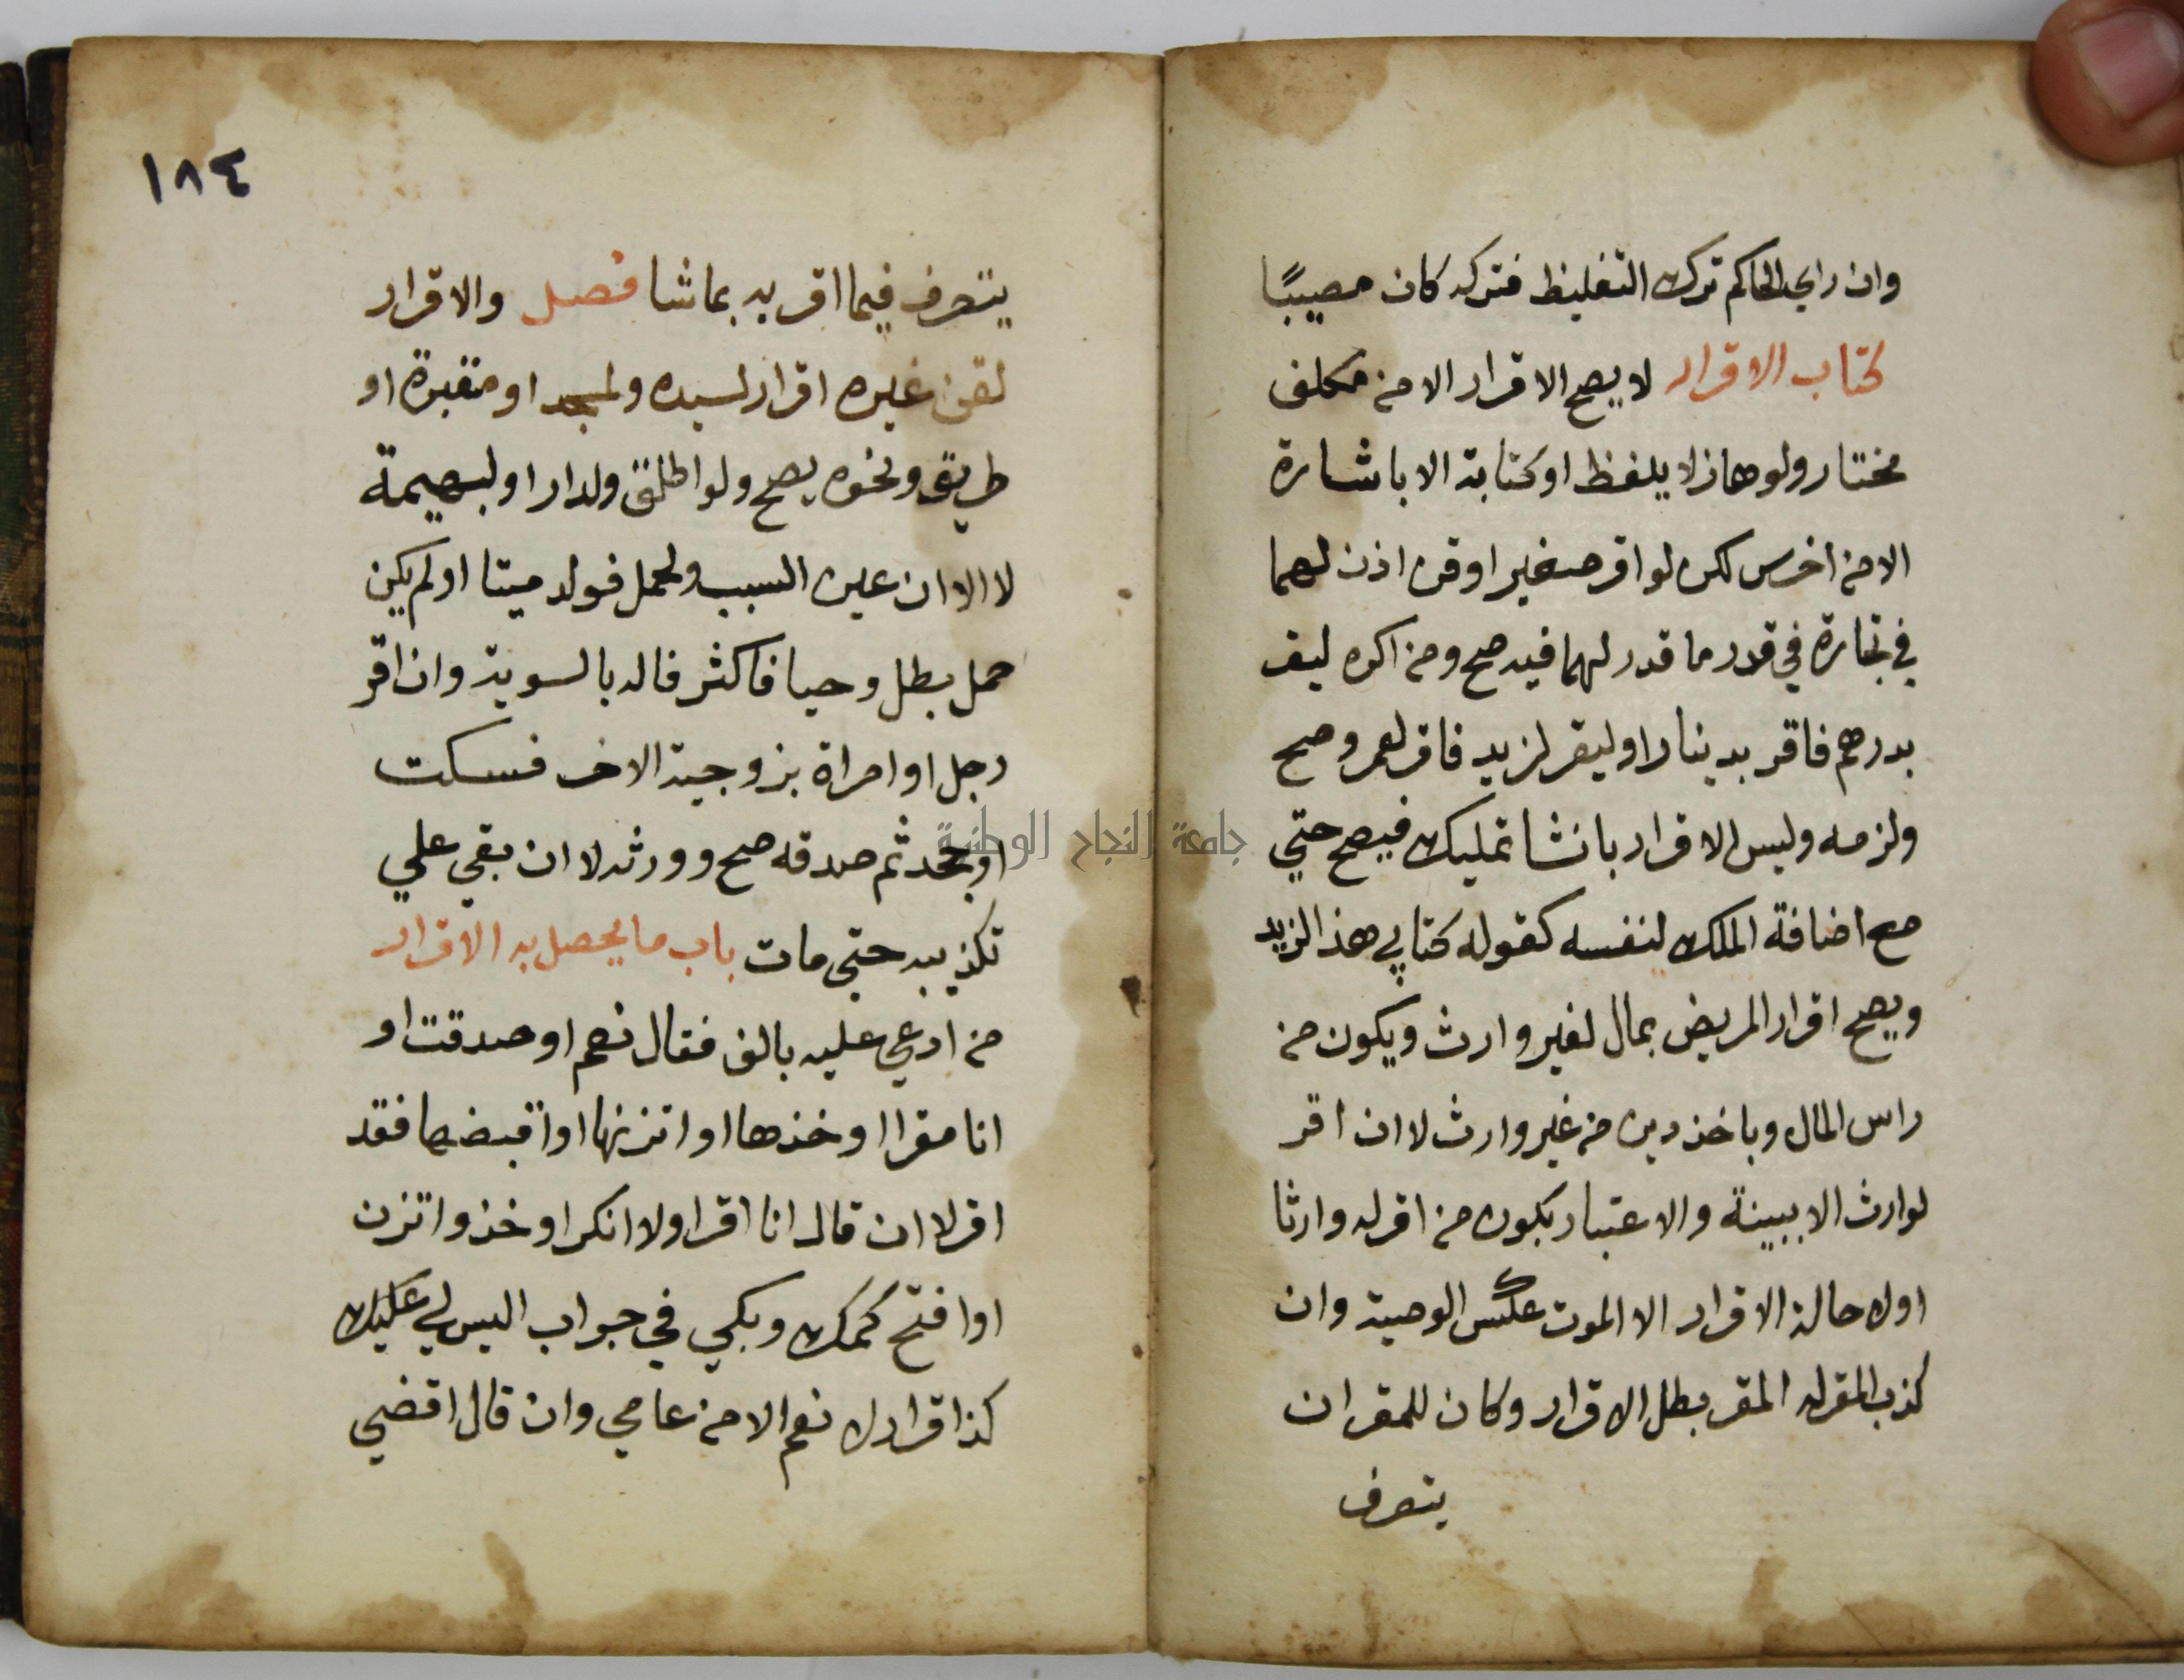 وان راي الحاكم ترك التغليظ فتركه كان مصيبًا
كتاب الاقرار لا يصح الاقرار الا من مكلف
مختار ولو هازلا بلفظ او كتابة الا باشارة
الا من اخرس لكن لو اقر صغير او قن اذن لهما
في تجارة في قدر ما قدر لهما فيه صح ومن اكره ليقر
بدرهم فاقر بدينار او ليقر لزيد فاقر لعمرو صح
ولزمه وليس الاقرار بانشا تمليك فيصح حتي
مع اضافة الملك لنفسه كقوله كتابي هذا لزيد
ويصح اقرار المريض بمال لغير وارث ويكون من
راس المال وباخذ دين من غير وارث لا ان اقر
لوارث الا ببينة والاعتبار بكون من اقر له وارثا
اولا حالة الاقرار لا الموت عكس الوصية وان
كذب المقر له المقر بطل الاقرار وكان للمقر ان
يتصرف
١٨٤
يتصرف فيما اقر به بما شا فصل والاقرار
لقن غيره اقرار لسيده ولمسجد او مقبرة او
طريق ونحوه يصح ولو اطلق ولدار او لبهيمة
لا الا ان عين السبب ولحمل فولد ميتا او لم يكن
حمل بطل وحيا فاكثر فاله بالسوية وان اقر
رجل او امراة بزوجية الاخر فسكت
او جحد ثم صدقه صح وورثه لا ان بقي علي
تكذيبه حتي مات باب ما يحصل به الاقرار
من ادعي عليه بالف فقال نعم او صدقت او
انا مقر او خذها او اتزنها او اقبضها فقد
اقر لا ان قال انا اقر او لا انكر او خذ واتزن
او افتح كمك وبلي في جواب اليس لي عليك
كذا اقرار لا نعم الا من عامي وان قال اقضي
جامعة النجاح الوطنية